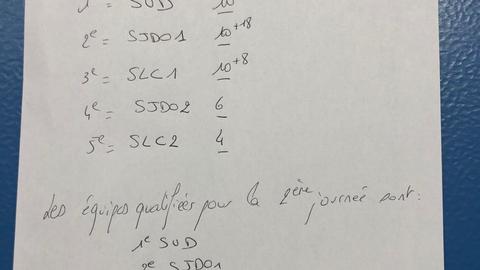 1e = SUD 10
2e = SJDO1 10+18
3e = SLC1 10+8
4e = SJDO2 6
5e = SLC2 4
Les équipes qualifiées pour la 2ère journée sont:
1e SUD
2e SJDO1